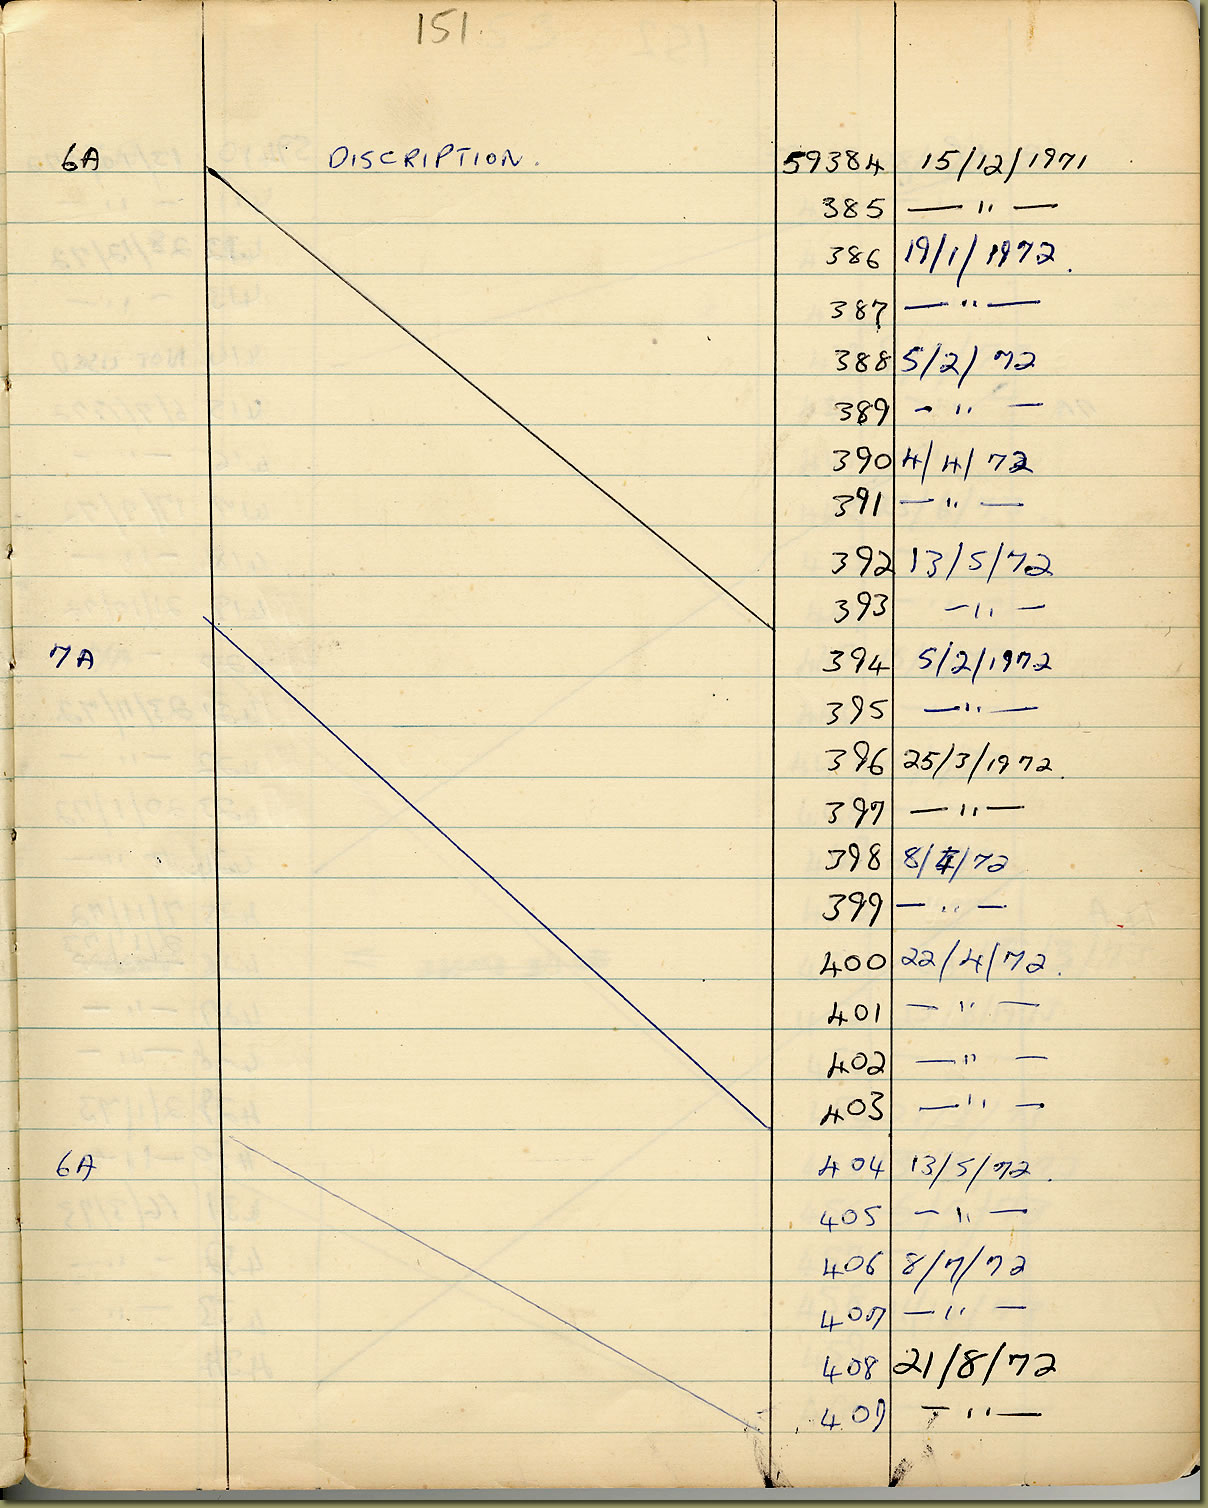 151.
6A DISCRIPTION. 59384 15/12/1971
385 — " —
386 19/1/1972.
387 — " —
388 5/2/72
389 - " —
390 4/4/72
391 — " —
392 13/5/72
393 — " —
7A 394 5/2/1972
395 — " —
396 25/3/1972.
397 — " —
398 8/4/72
399 — " —
400 22/4/72.
401 — " —
402 — " —
403 — " —
6A 404 13/5/72.
405 — " —
406 8/7/72
407 — " —
408 21/8/72
409 — " —